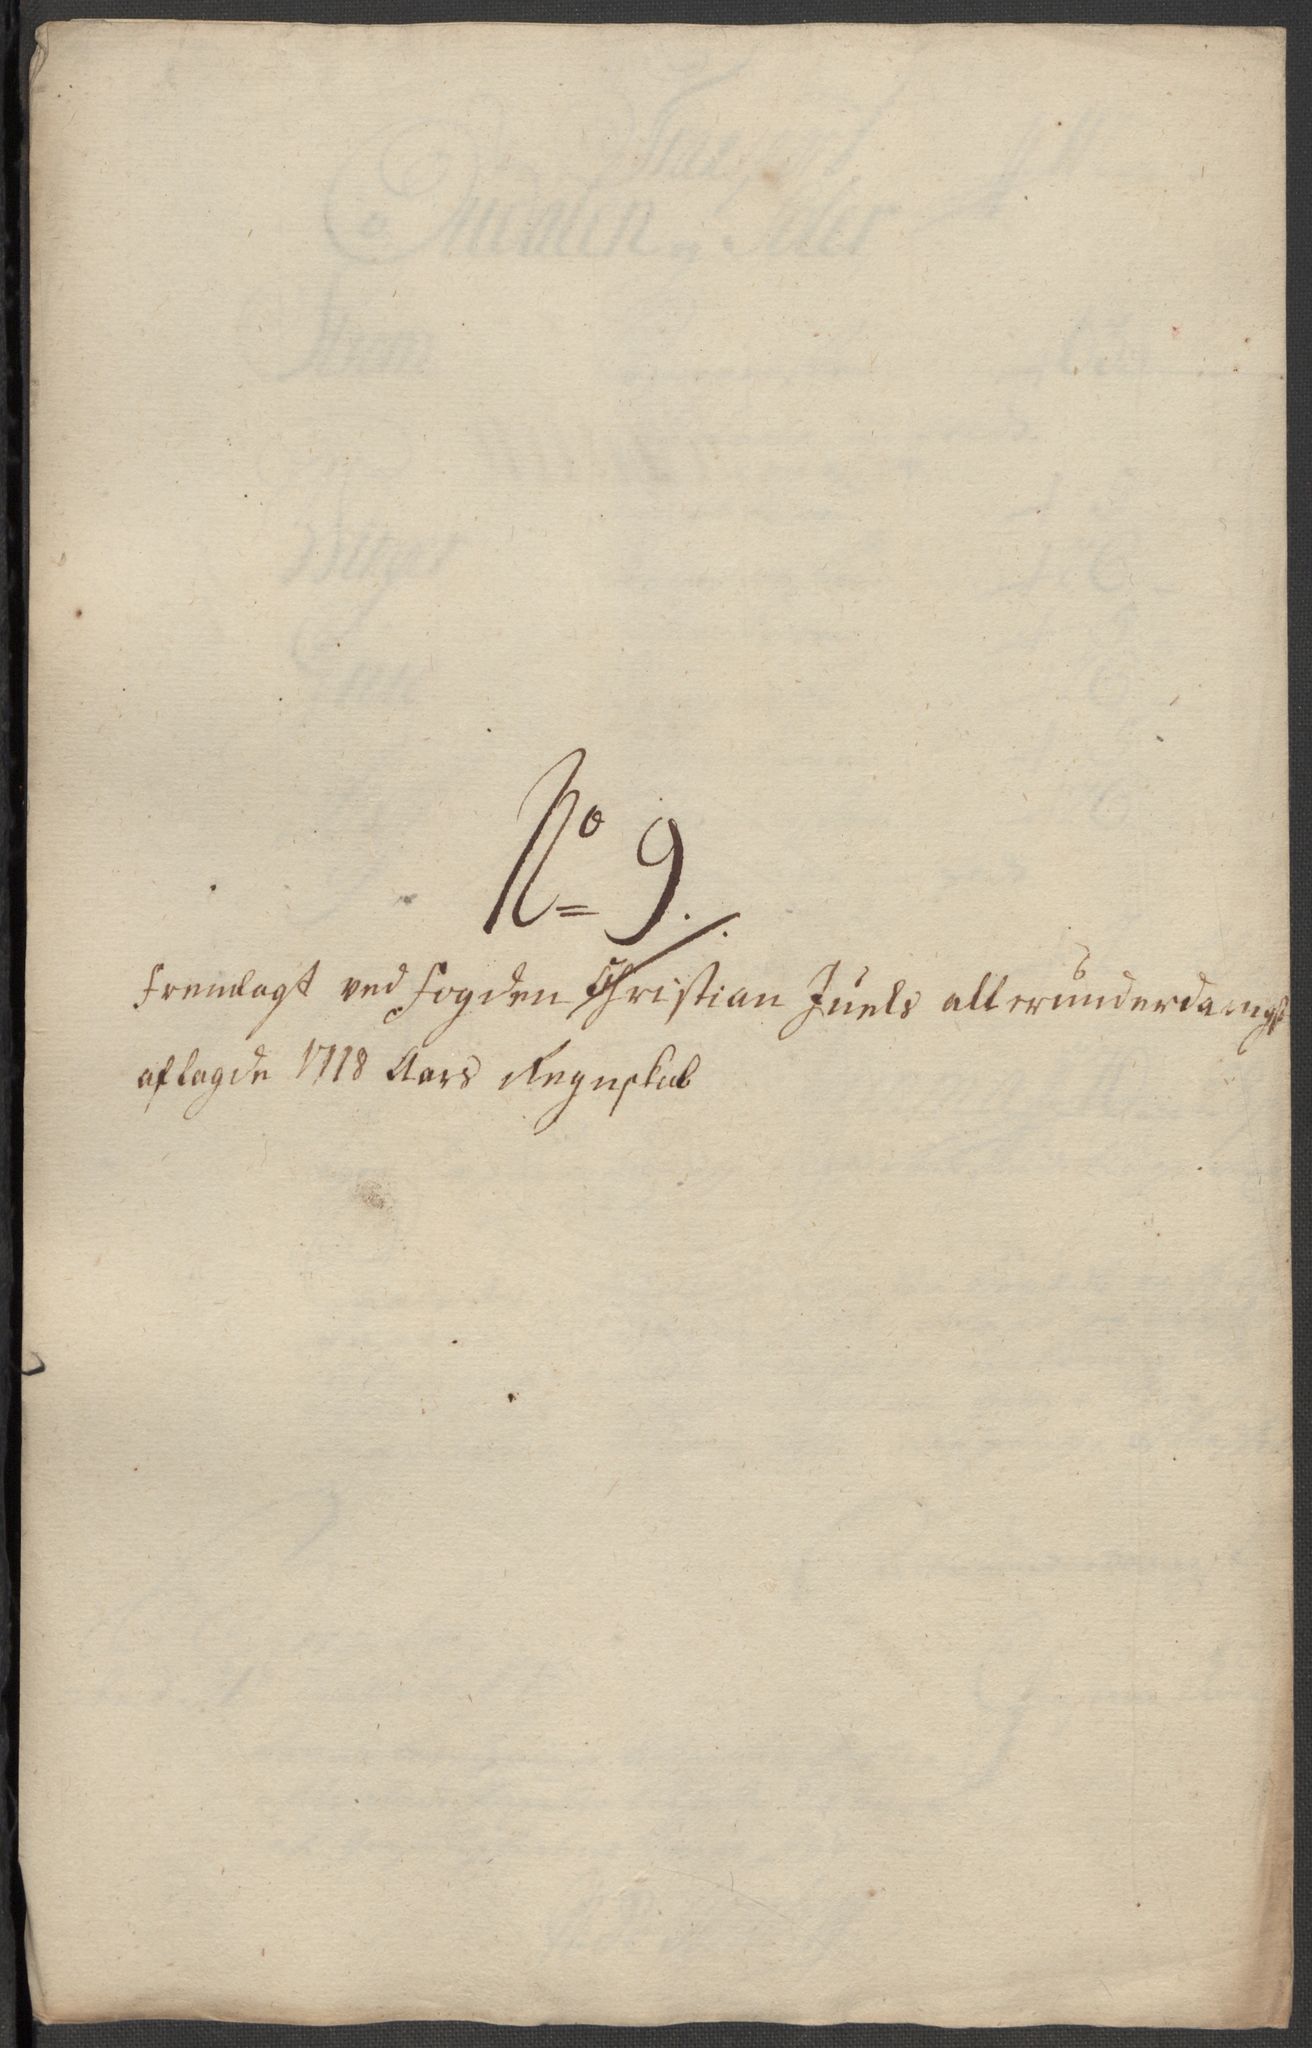 No 9.
Fremlagt ved Fogden Christian Juels allerunderdanigst
aflagde 1718 Aars Regnskab